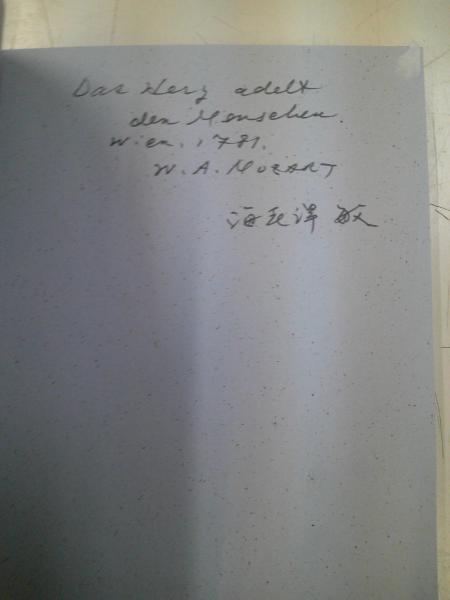 Das Herz adelt
den Menschen.
Wien, 1781.
W. A. MOZART
海老澤 敏